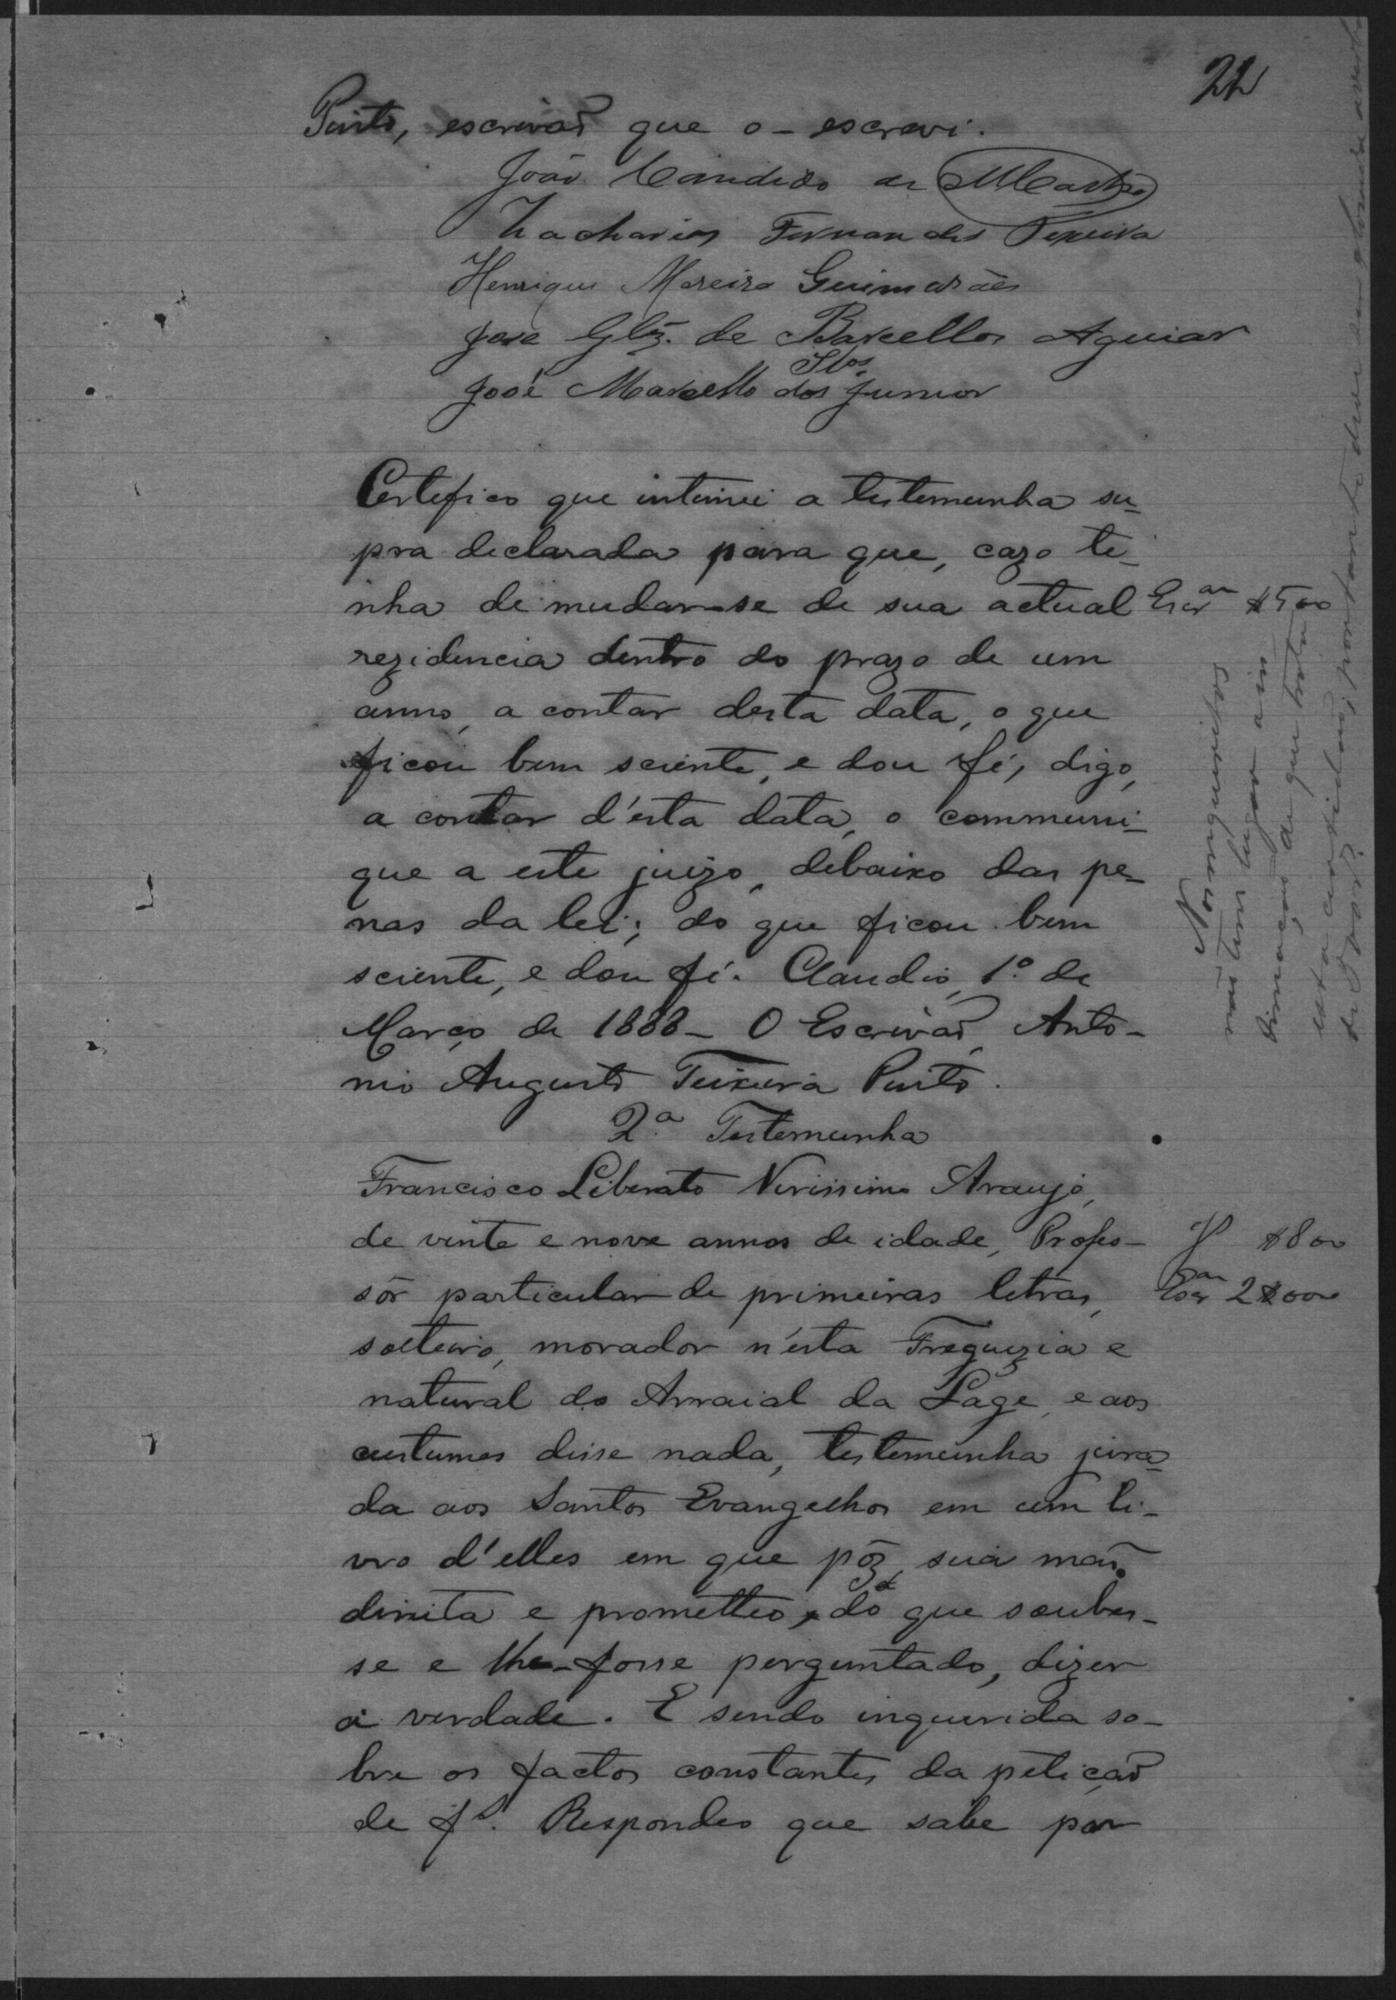 22
Pinto, escrivaõ que o-escrevi.
João Candido de MCastro
Zacharias Fernandes Pereira
Henrique Moreira Guimarães
José Glz. de Barcellos Aguiar
José Marcello dos Stos Junior
Certefico que intimei a testemunha su-
pra declarada para que, cazo te-
nha de mudar-se de sua actual
rezidencia dentro do prazo de um
anno, a contar desta data, o que
ficou bem sciente, e dou fé, digo,
a contar d'esta data, o communi-
que a este juizo, debaixo das pe-
nas da lei; do que ficou bem
sciente, e dou fé. Claudio, 1º de
Março de 1888 - O Escrivaõ, Anto-
nio Augusto Teixeira Pinto.
Escram $500
Nos inqueritos
não tem lugar a in
timação de que trata
esta certidão; portanto deve ser glosada a verba
de $500rs.
2ª Testemunha
Francisco Liberato Verissimo Araujo,
de vinte e nove annos de idade, Profes-
sôr particular de primeiras letras,
solteiro, morador n'esta Freguezia e
natural do Arraial da Lage, e aos
custumes disse nada, testemunha jura-
da aos Santos Evangelhos em um li-
vro d'elles em que pôz sua maõ
direita e prometteo, do que soubes-
se e lhe-fosse perguntado, dizer
a verdade. E sendo inquerida so-
bre os factos constantes da petiçaõ
de fs. Respondeo que sabe por
J $800
Escam 2$000